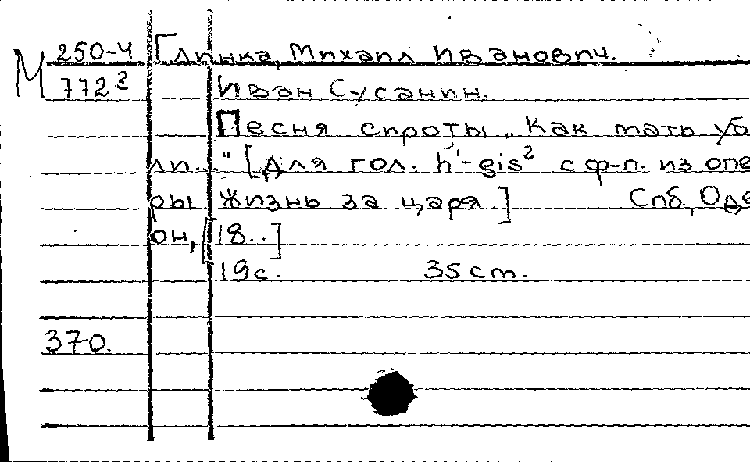 М 250-4 Глинка, Михаил Иванович.
772² Иван Сусанин.
Песня сироты „Как мать уби
ли..." [Для гол. h'-gis² с ф-п. из опе
ры Жизнь за царя.] Спб, Оде
он, [18..]
19с. 35 cm.
370.